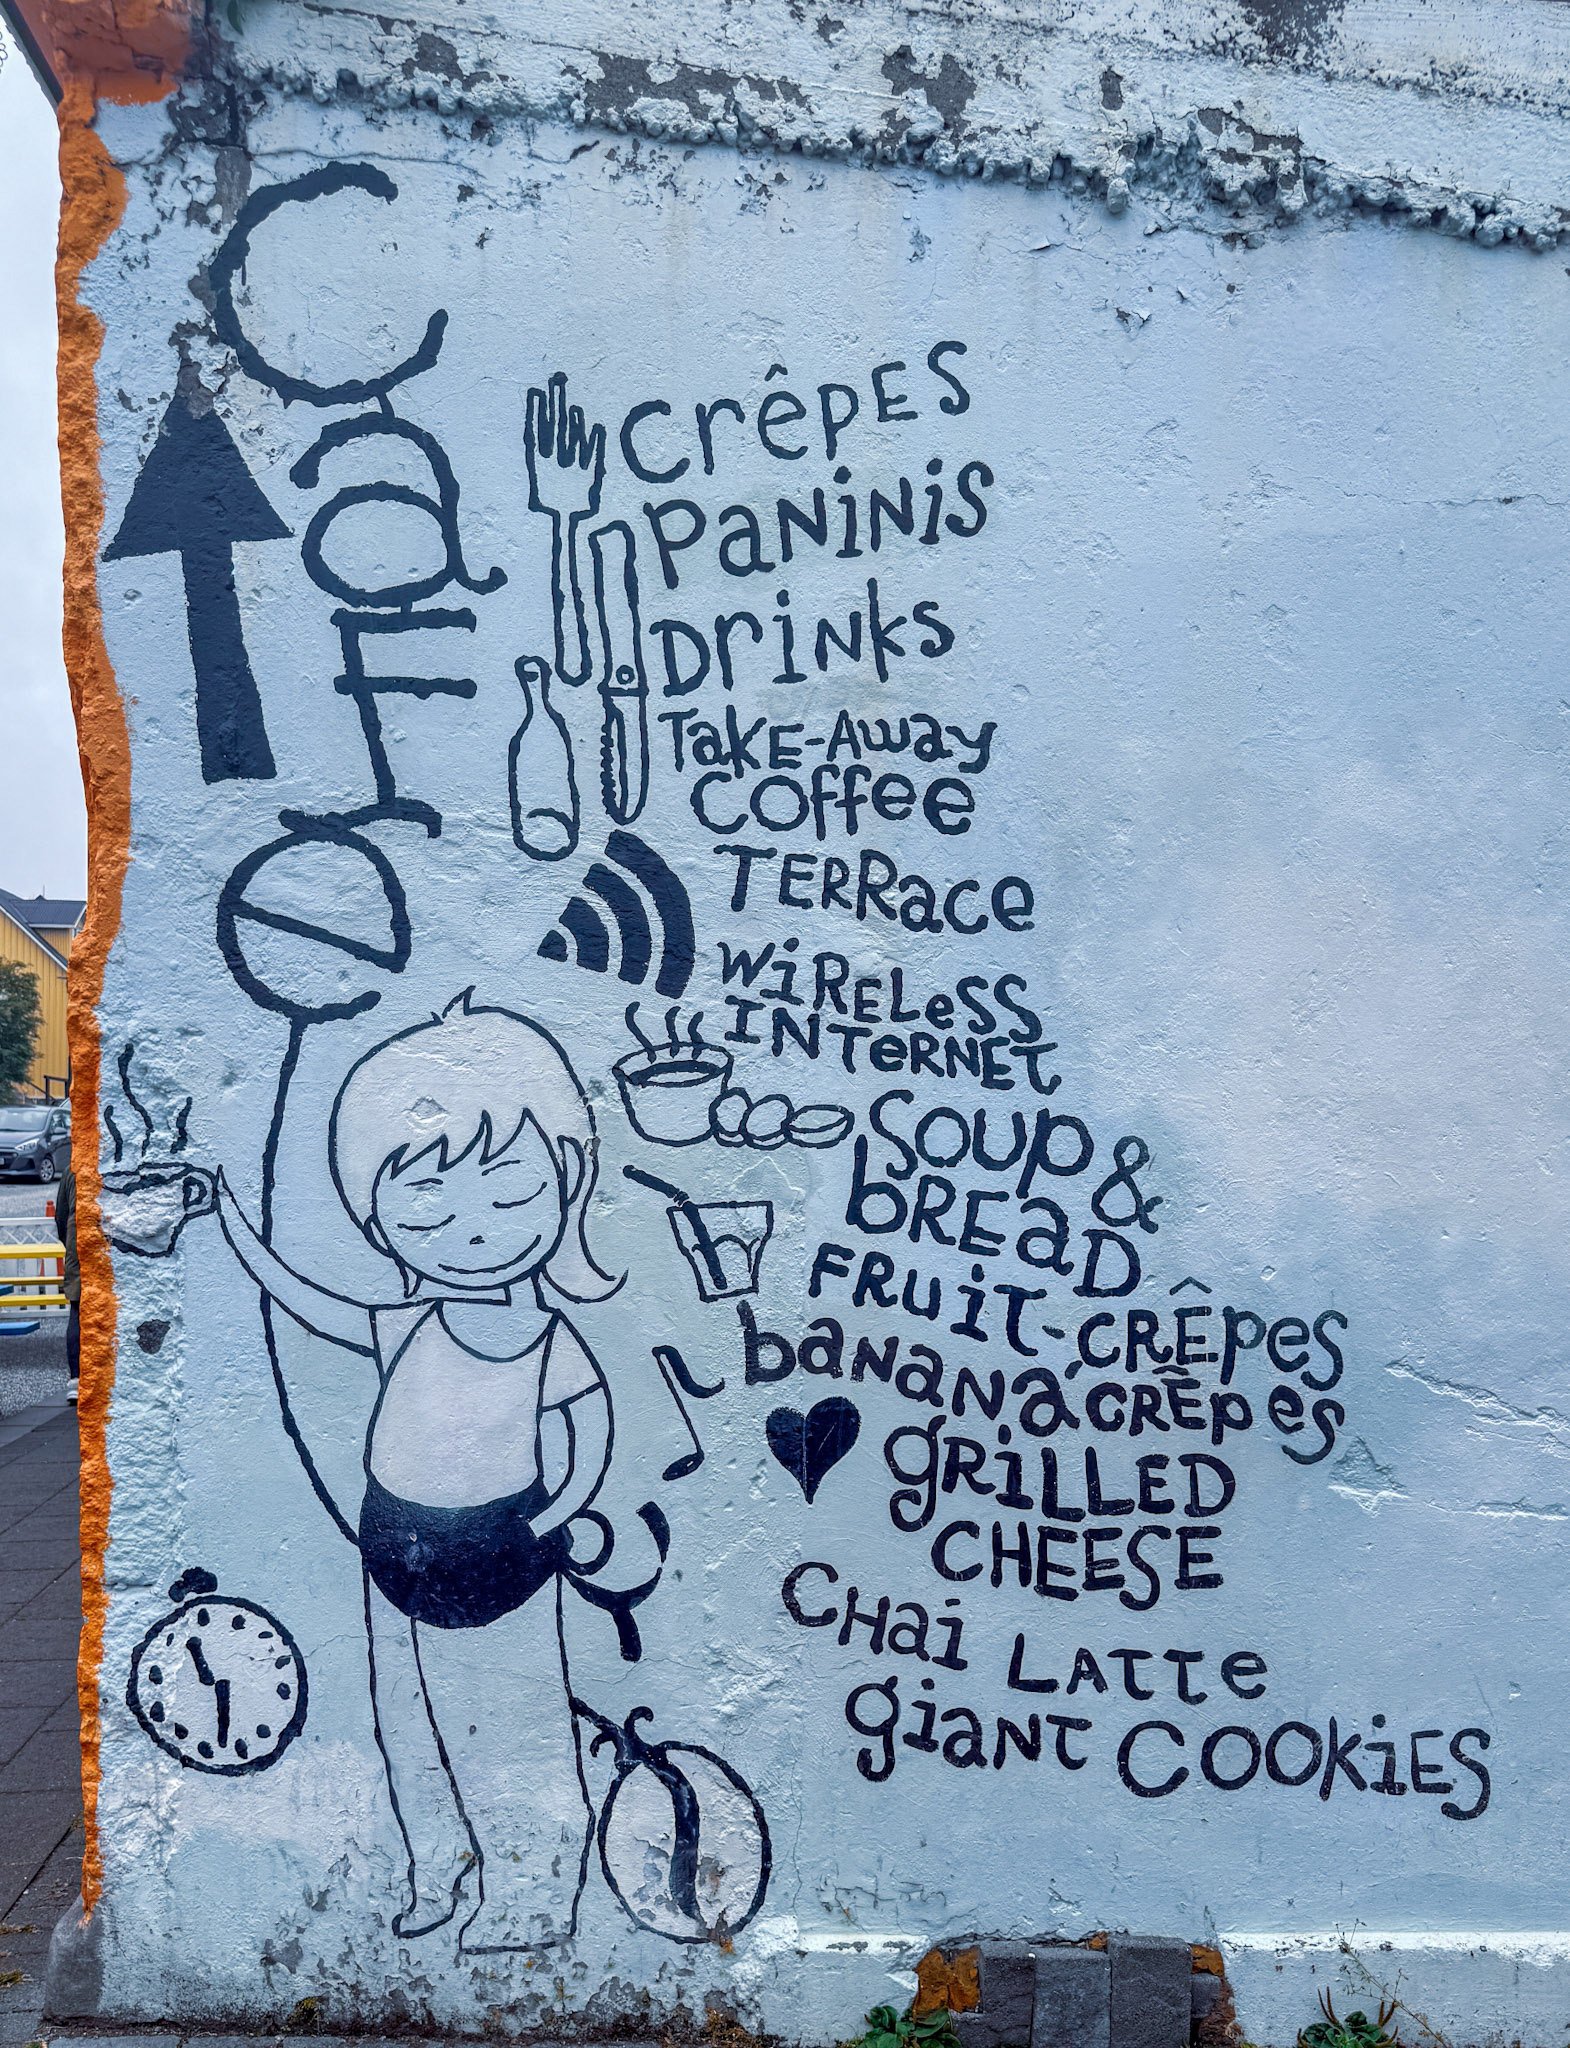 CaFe
crêpes
PaNiNiS
DriNks
Take-Away
coffee
TERRace
WiReLeSS
INTeRNET
Soup &
bREaD
FRuiT-CRÊpes
baNaNa CRÊpes
gRiLLED
CHEESE
CHai LATTe
giaNT COOkiES